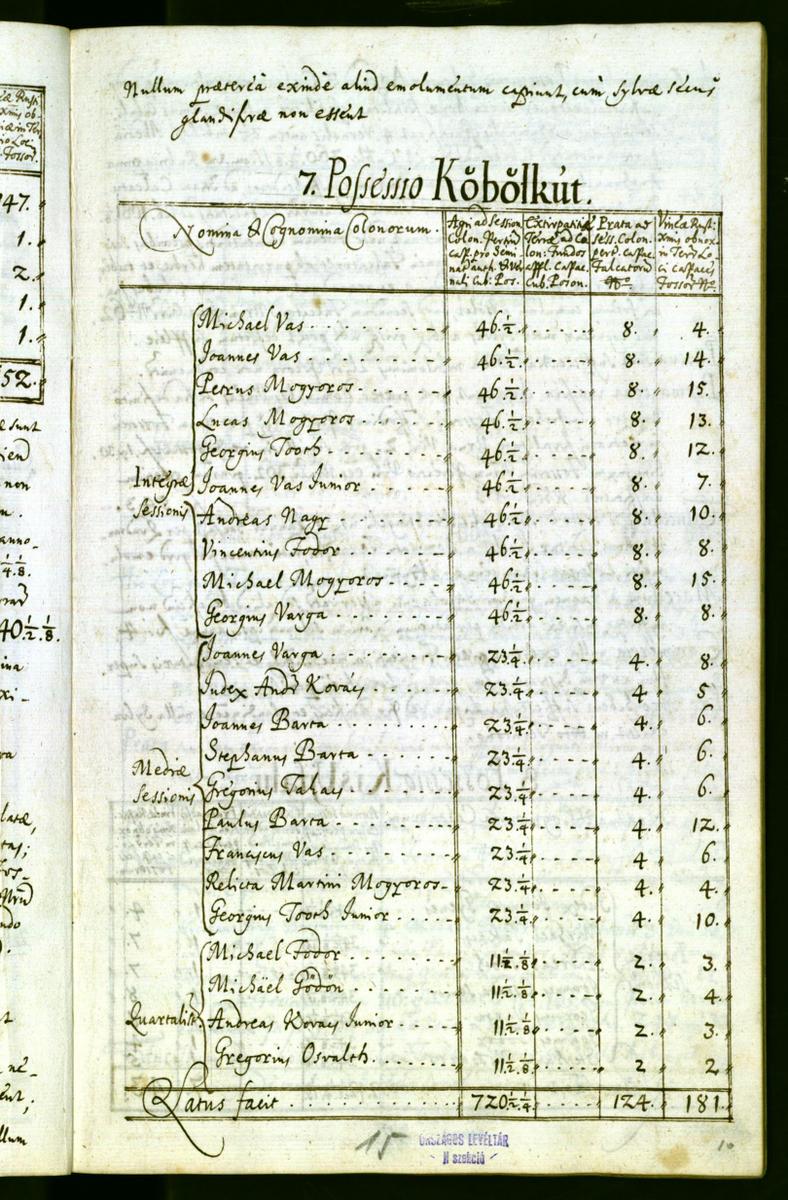 Nullum præterea exinde aliud emolumentum capiunt, cum sylvæ secus
glandifræ non essent
7. Possessio Kőbőlkút.
Nomina & Cognomina Colonorum.
Agri ad Session
Colon. Pertin
caspl. pro Semi
nat: auth. & Ver
nali Cub: Pos.
Extirpatitiæ
Terræ ad Co
lon: Fundos
appl. Caspac.
Cub. Poson.
Prata ad
Sess. Colon.
pert. caspac.
Falcatorũ
Nº
Vineæ Rusti:
xmis obnox
in Terr. Lo
ci caspaces
Fossor Nº
Integræ
Sessionis
Michael Vas 46.½ 8. 4.
Joannes Vas 46.½ 8. 14.
Petrus Mogyoros 46.½ 8. 15.
Lucas Mogyoros 46.½ 8. 13.
Georgius Tooth 46.½ 8. 12.
Joannes Vas Junior 46.½ 8. 7.
Andreas Nagy 46.½ 8. 10.
Vincentius Fodor 46.½ 8. 8.
Michael Mogyoros 46.½ 8. 15.
Georgius Varga 46.½ 8. 8.
Mediæ
Sessionis
Joannes Varga 23.¼ 4. 8.
Judex Andr Kovács 23.¼ 4 5
Joannes Barta 23.¼ 4. 6.
Stephanus Barta 23.¼ 4. 6.
Gregorius Takacs 23.¼ 4. 6.
Paulus Barta 23.¼ 4. 12.
Franciscus Vas 23.¼ 4 6.
Relicta Martini Mogyoros 23.¼ 4. 4.
Georgius Tooth Junior 23.¼ 4. 10.
Quartalist
Michael Fodor 11½.⅛ 2. 3.
Michäel Gödön 11½.⅛ 2. 4.
Andreas Kovacs Junior 11½.⅛ 2. 3.
Gregorius Osvalth. 11½.⅛ 2 2
Latus facit 720½.¼ 124. 181.
15
ORSZÁGOS LEVÉLTÁR
N szekció
10
147.
1.
2.
1.
1.
52.
40½.⅛.